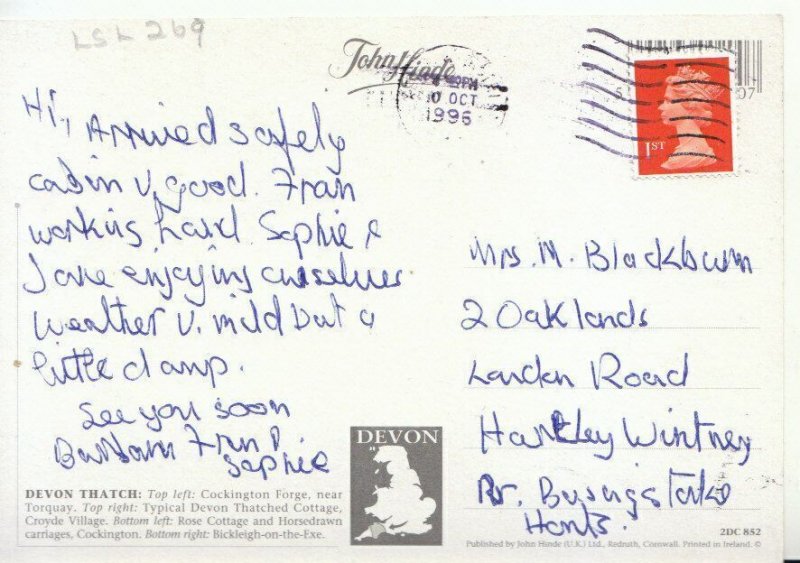 LSL 269
John Hinde
PM
10 OCT
1996
1ST
Hi, Arrived safely
cabin v. good. Fran
working hard. Sophie &
Jane enjoying ourselves
weather v. mild but a
little damp.
See you soon
Fran &
Sophie
Mrs. M. Blackburn
2 Oaklands
London Road
Hartley Wintney
Nr. Basingstoke
Hants.
DEVON
DEVON THATCH: Top left: Cockington Forge, near
Torquay. Top right: Typical Devon Thatched Cottage,
Croyde Village. Bottom left: Rose Cottage and Horsedrawn
carriages, Cockington. Bottom right: Bickleigh-on-the-Exe.
2DC 852
Published by John Hinde (U.K.) Ltd., Redruth, Cornwall. Printed in Ireland. ©